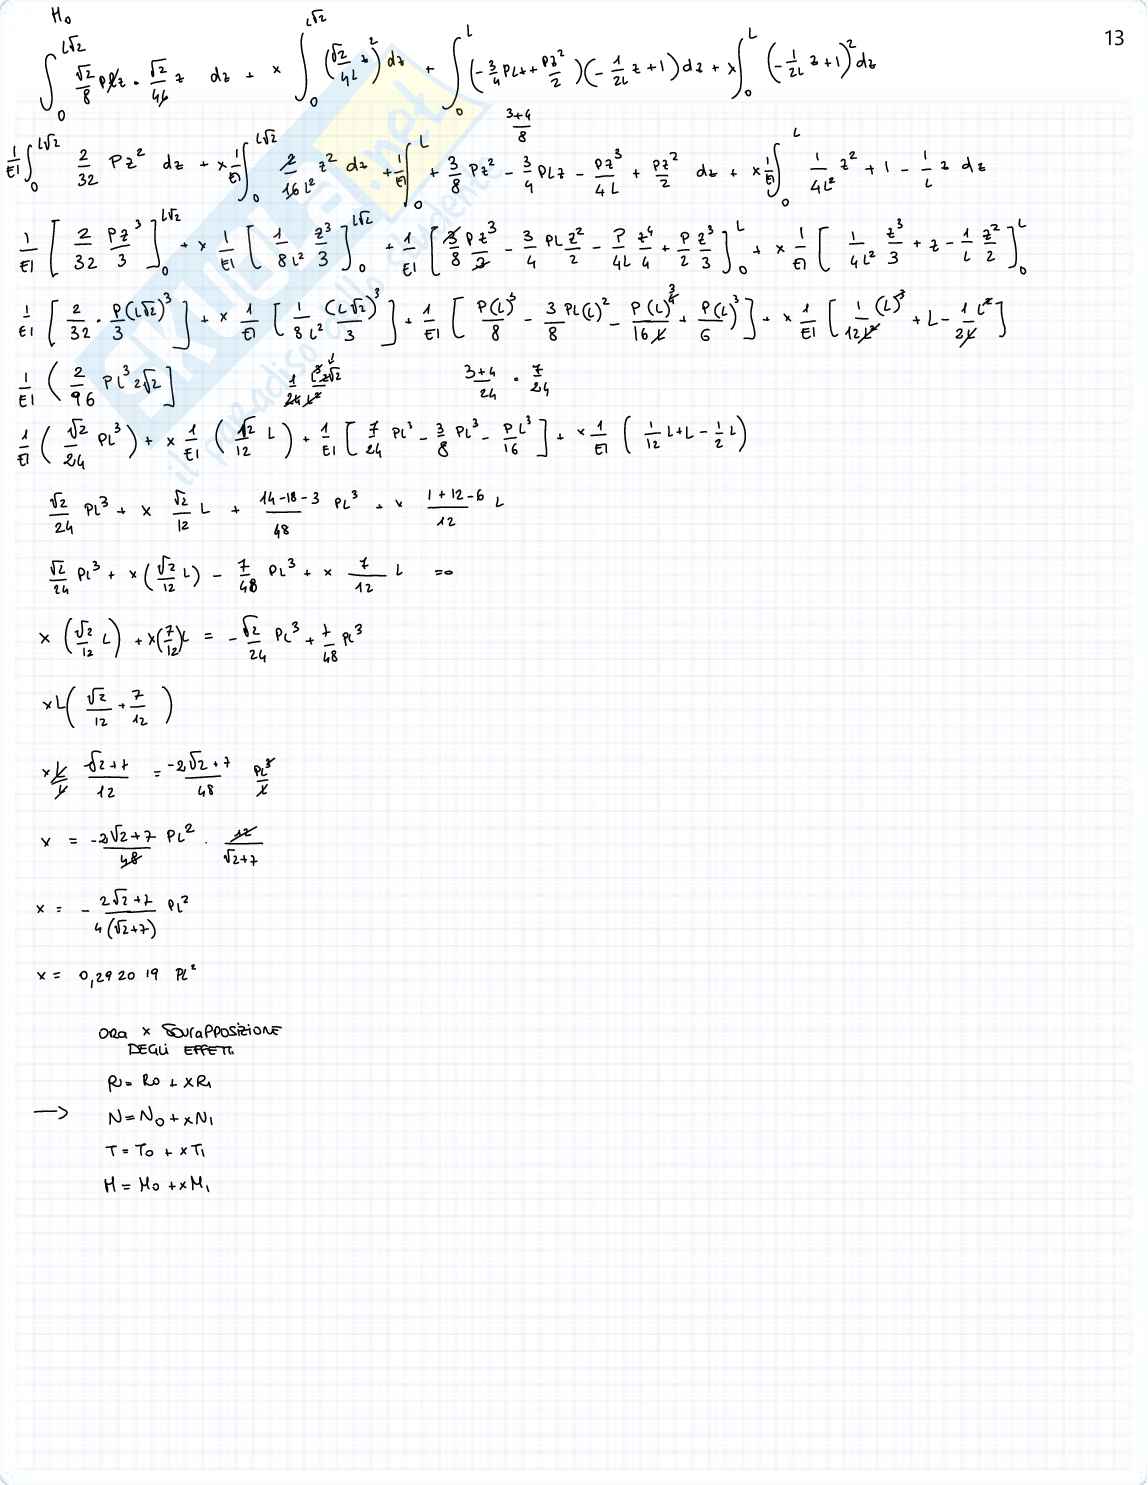 13
M₀
∫₀^{L√2} √2/8 PLz · √2/4L z dz + x ∫₀^{L√2} (√2/4L z)² dz + ∫₀^L (-3/4 PLz + Pz²/2)(-1/2L z+1) dz + x∫₀^L (-1/2L z+1)² dz
3+4/8
1/EI ∫₀^{L√2} 2/32 Pz² dz + x 1/EI ∫₀^{L√2} 2/16L² z² dz + 1/EI ∫₀^L + 3/8 Pz² - 3/4 PLz - Pz³/4L + Pz²/2 dz + x 1/EI ∫₀^L 1/4L² z² + 1 - 1/L z dz
1/EI [2/32 Pz³/3]₀^{L√2} + x 1/EI [1/8L² z³/3]₀^{L√2} + 1/EI [3/8 P z³/3 - 3/4 PL z²/2 - P/4L z⁴/4 + P/2 z³/3]₀^L + x 1/EI [1/4L² z³/3 + z - 1/L z²/2]₀^L
1/EI [2/32 · P(L√2)³/3] + x 1/EI [1/8L² (L√2)³/3] + 1/EI [P(L)³/8 - 3/8 PL(L)² - P(L)³/16L + P(L)³/6] + x 1/EI [1/12L² (L)³ + L - 1/2L L²]
1/EI (2/96 PL³ 2√2] 1/24L² L³2√2 3+4/24 = 7/24
1/EI (√2/24 PL³) + x 1/EI (√2/12 L) + 1/EI [7/24 PL³ - 3/8 PL³ - PL³/16] + x 1/EI (1/12 L+L-1/2 L)
√2/24 PL³ + x √2/12 L + 14-18-3/48 PL³ + x 1+12-6/12 L
√2/24 PL³ + x(√2/12 L) - 7/48 PL³ + x 7/12 L =0
x (√2/12 L) + x(7/12)L = -√2/24 PL³ + 7/48 PL³
xL(√2/12 + 7/12)
x L/L √2+7/12 = -2√2+7/48 PL³/L
x = -2√2+7/48 PL² · 12/√2+7
x = - 2√2+7/4(√2+7) PL²
x = 0,292019 PL²
ORA x SOVRAPPOSIZIONE
DEGLI EFFETTI
R = R₀ + xR₁
→ N = N₀ + xN₁
T = T₀ + xT₁
M = M₀ + xM₁